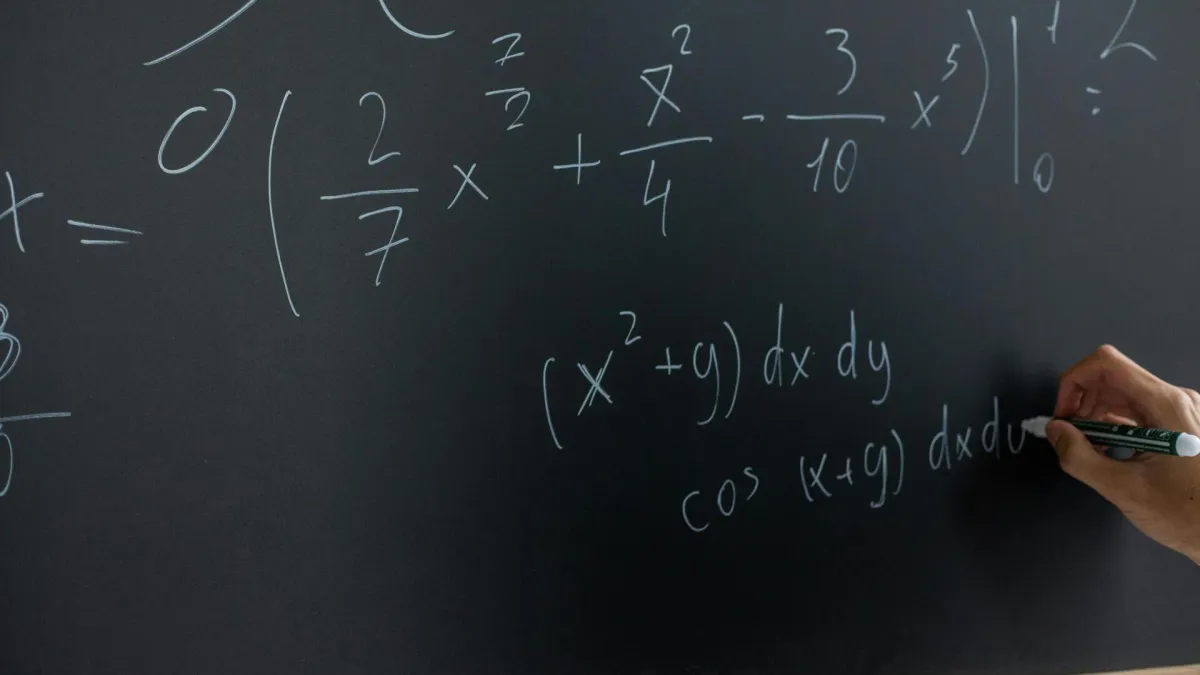 x = 0 ( 2/7 x^(7/2) + x^2/4 - 3/10 x^5 ) |_0^1 =
(x^2 + y) dx dy
cos (x+y) dx d